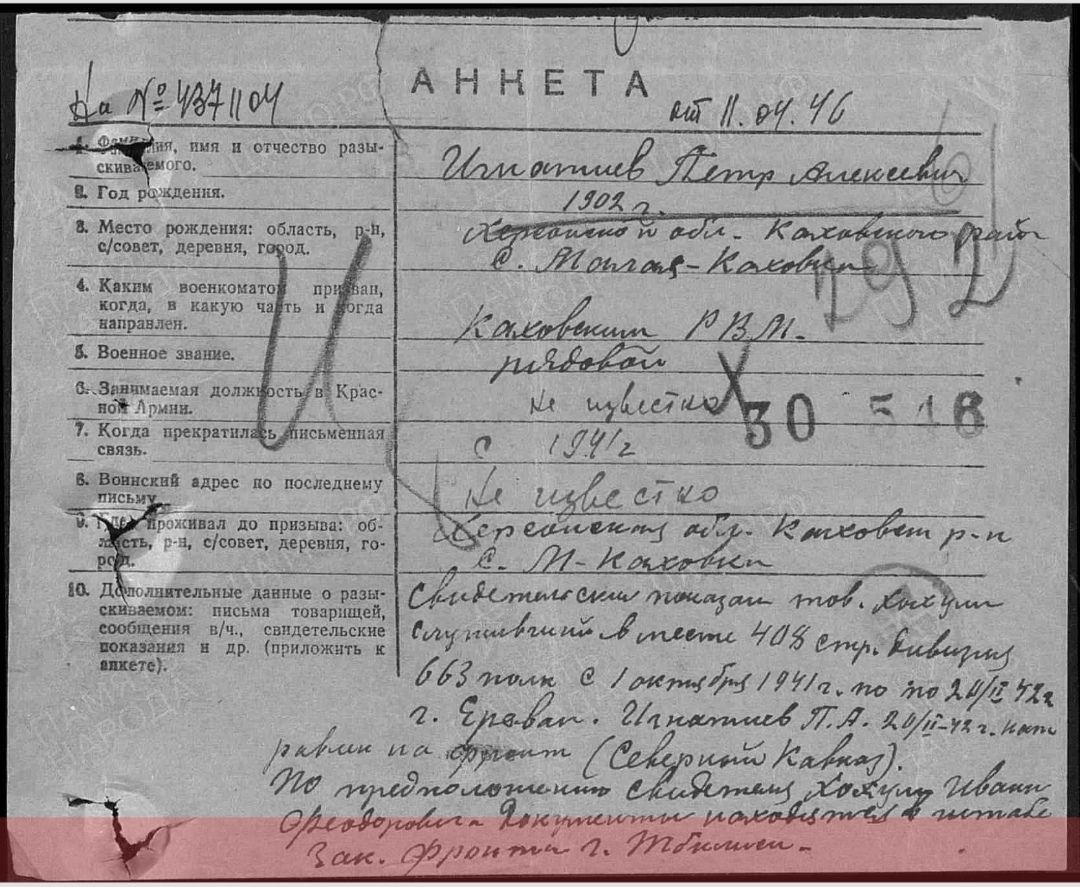 АНКЕТА
На № 437 1104
от 11.04.46
1. Фамилия, имя и отчество разы-
скиваемого.
Игнатиев Петр Алексеевич
2. Год рождения.
1902 г.
3. Место рождения: область, р-н,
с/совет, деревня, город.
Херсонской обл. Каховского район
С. Малая-Каховка
4. Каким военкоматом призван,
когда, в какую часть и когда
направлен.
Каховским Р В К.
5. Военное звание.
рядовой
6. Занимаемая должность в Крас-
ной Армии.
Не известно
30
16
7. Когда прекратилась письменная
связь.
С 1941 г
8. Воинский адрес по последнему
письму
Не известно
9. Где проживал до призыва: об-
ласть, р-н, с/совет, деревня, го-
род.
Херсонская обл. Каховск р-н
С. М-Каховка
10. Дополнительные данные о разы-
скиваемом: письма товарищей,
сообщения в/ч., свидетельские
показания и др. (приложить к
анкете).
Свидетельские показан тов. Хохули
служивший в месте 408 стр. дивизия
663 полк с 1 октября 1941 г. по по 20/II 42 г
г. Ереван. Игнатиев П.А. 20/II-42 г. нап
равлен на фронт (Северный Кавказ).
По предположению свидетеля Хохули Ивана
Феодоровича документы находятся в штабе
Зак. фронта г. Тбилиси.